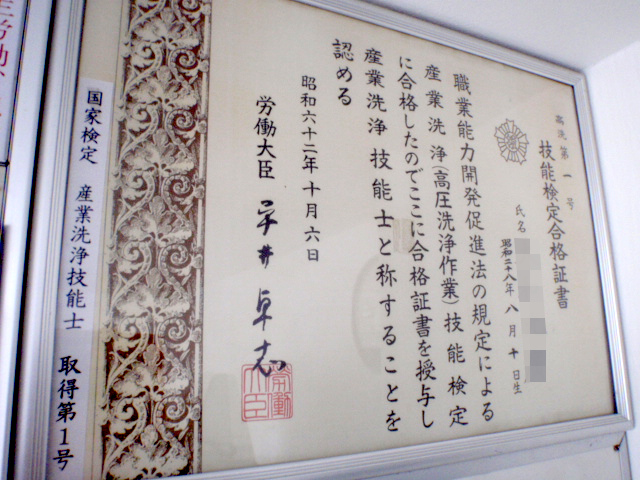 高洗第一号
技能検定合格証書
氏名
昭和二十八年八月十日生
職業能力開発促進法の規定による
産業洗浄(高圧洗浄作業)技能検定
に合格したのでここに合格証書を授与し
産業洗浄技能士と称することを
認める
昭和六十二年十月六日
労働大臣 平井卓志
労働大臣
国家検定 産業洗浄技能士 取得第1号